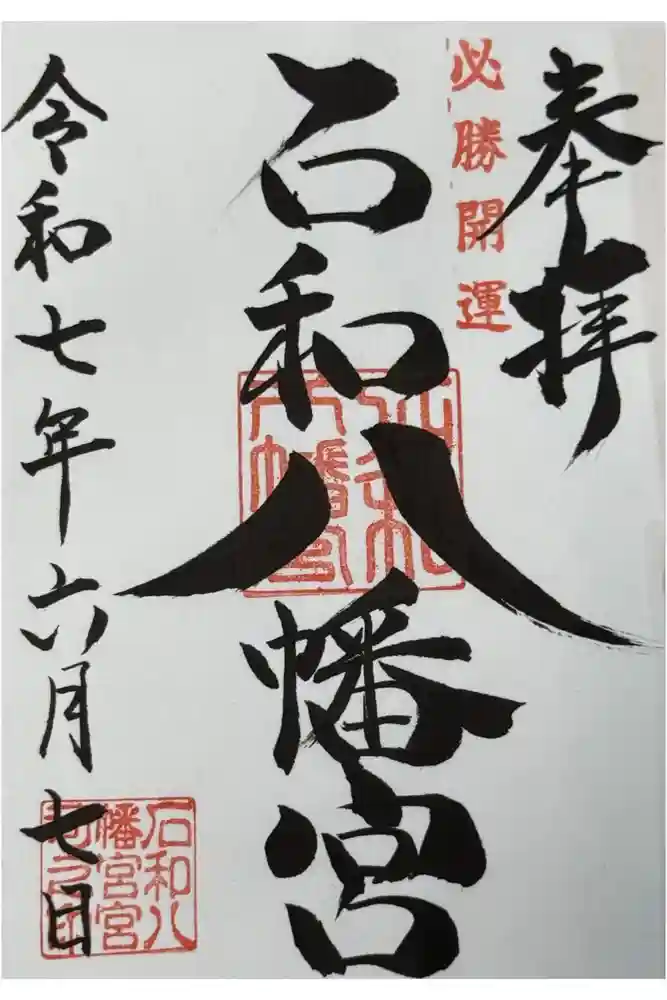 奉拝
必勝開運
石和八幡宮
石和八幡宮
石和八
幡宮宮
司之印
令和七年六月七日